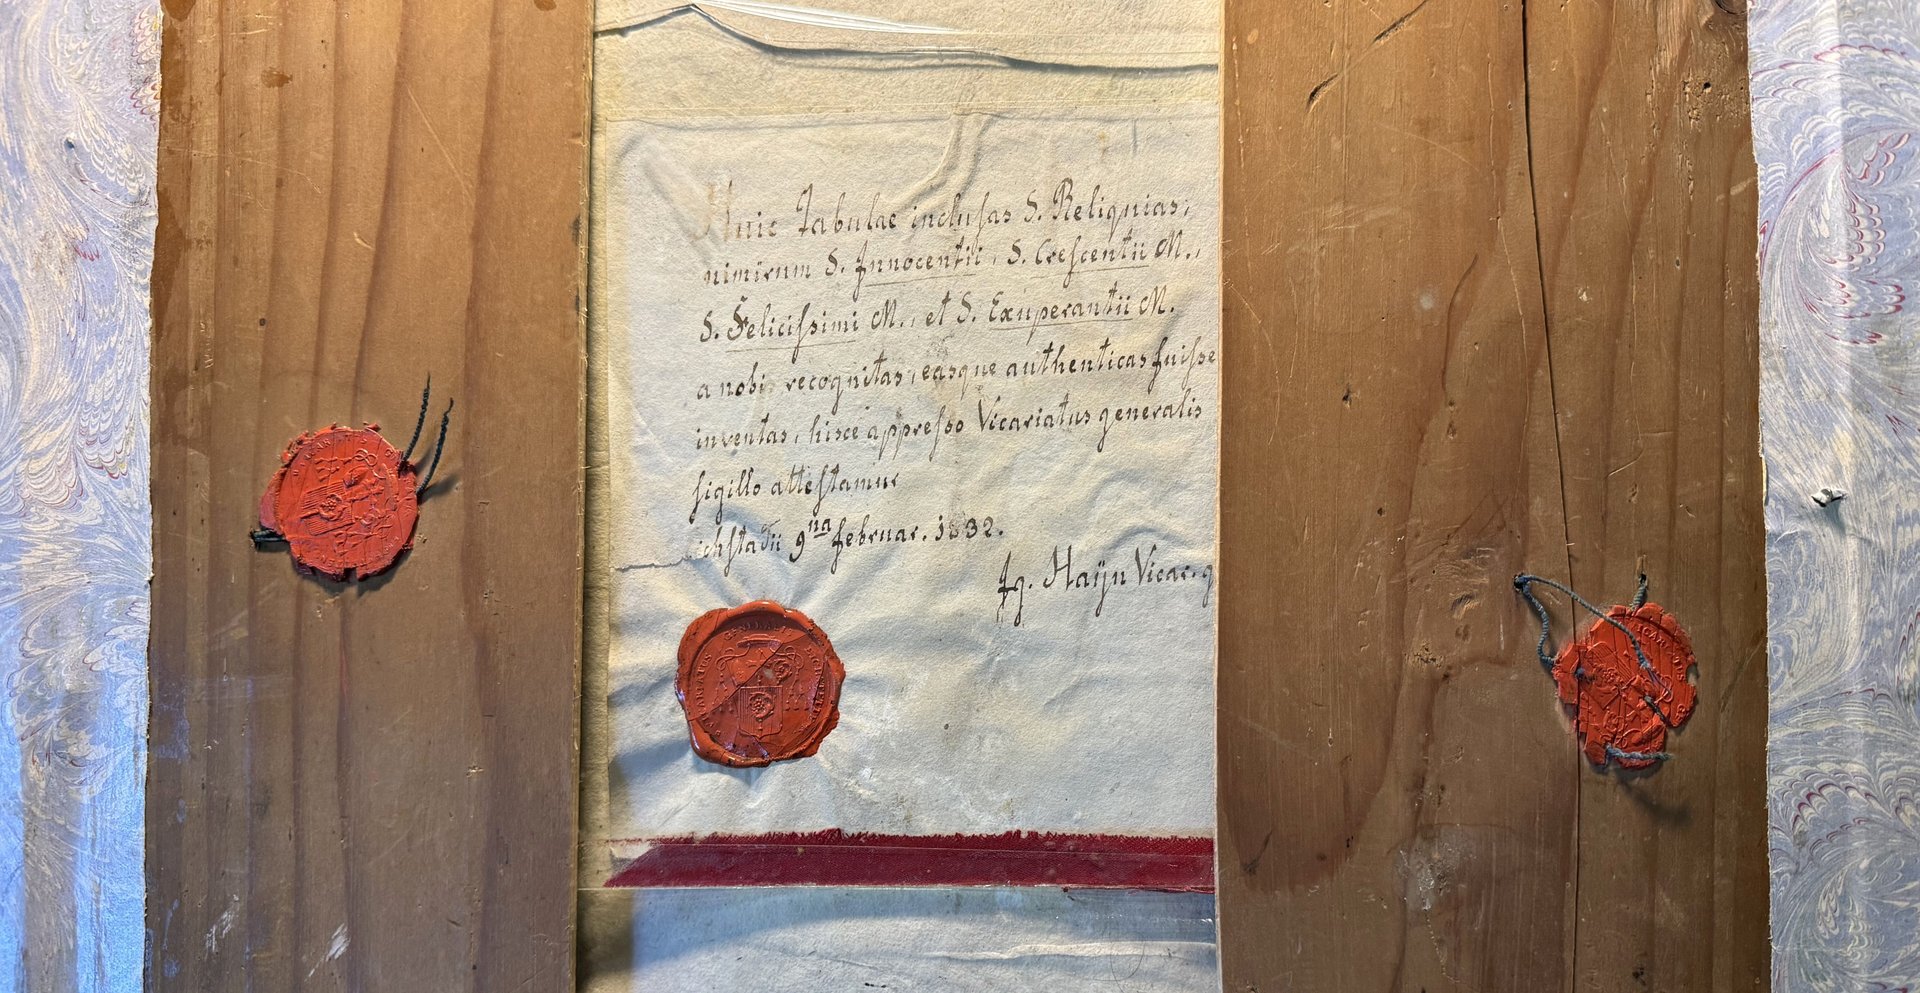 Huic Tabulae inclusas S. Reliquias,
nimirum S. Innocentii, S. Crescentii M.,
S. Felicissimi M., et S. Exuperantii M.
a nobis recognitas, easque authenticas fuisse
inventas, hisce appresso Vicariatus generalis
sigillo attestamur
ichstadii 9na februar. 1832.
Jg. Haijn Vicar. g
VICARIATUS GENERALIS
VICARIATUS